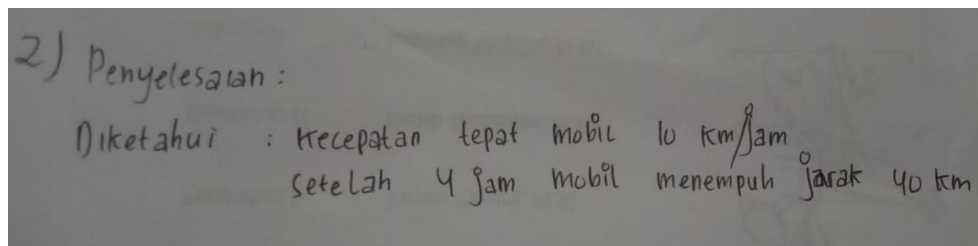 2) Penyelesaian :
Diketahui : Kecepatan tepat mobil 10 km/Jam
Setelah 4 Jam mobil menempuh jarak 40 km